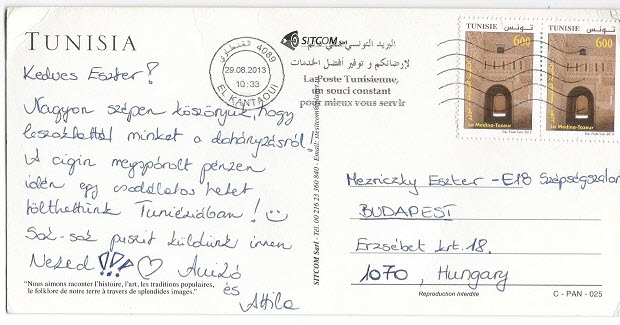 TUNISIA
Kedves Eszter!
Nagyon szépen köszönjük, hogy
leszoktattál minket a dohányzásról!
A cigin megspórolt pénzen
idén egy csodálatos hetet
tölthettünk Tunéziában! 
Sok-sok puszit küldünk innen
Neked !!! ♡ Anikó
és
Attila
"Nous aimons raconter l'histoire, l'art, les traditions populaires,
le folklore de notre terre à travers de splendides images."
SITCOM Sarl
4089
29.08.2013
10:33
EL KANTAOUI
القنطاوي
البريد التونسي
لإرضائكم و توفير أفضل الخدمات
La Poste Tunisienne,
un souci constant
pour mieux vous servir
SITCOM Sarl - Tél. 00 216 23 360 840 - Email:
TUNISIE تونس
600
La Medina-Tozeur
TUNISIE تونس
600
La Medina-Tozeur
Mezriczky Eszter - E18 Szépségszalon
BUDAPEST
Erzsébet krt. 18.
1070, Hungary
Reproduction Interdite
C - PAN - 025